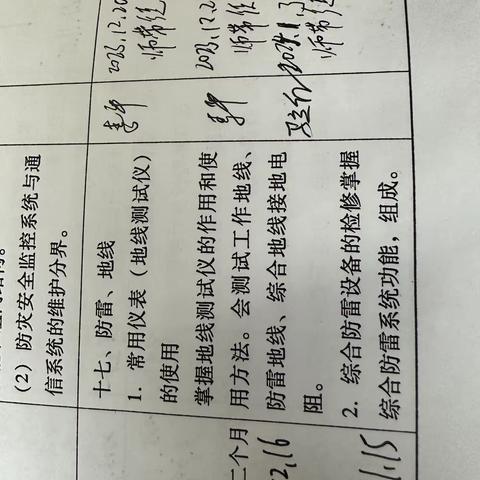 (2) 防灾安全监控系统与通
信系统的维护分界。
十七、防雷、地线
1. 常用仪表（地线测试仪）
的使用
掌握地线测试仪的作用和使
用方法。会测试工作地线、
防雷地线、综合地线接地电
阻。
2. 综合防雷设备的检修掌握
综合防雷系统功能，组成。
二个月
2.16
1.15
2023.12.20
师带徒
2023.12.2
师带徒
师带徒